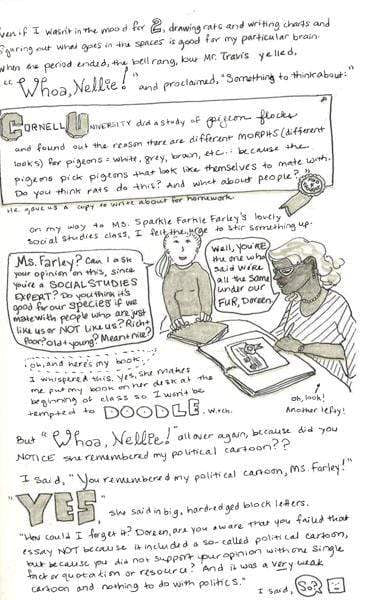 ven if I wasn't in the mood for 2, drawing rats and writing charts and
figuring out what goes in the spaces is good for my particular brain.
When the period ended, the bell rang, but Mr. Travis yelled,
"Whoa, Nellie!" and proclaimed, "Something to think about:"
CORNELL UNIVERSITY did a study of pigeon flocks
and found out the reason there are different MORPHS (different
looks) for pigeons = white, grey, brown, etc.: because the
pigeons pick pigeons that look like themselves to mate with.
Do you think rats do this? And what about people?"
He gave us a copy to write about for homework.
On my way to Ms. Sparkle Farkle Farley's lovely
social studies class, I felt the urge to stir something up.
Ms. Farley? Can I ask
your opinion on this, since
you're a SOCIAL STUDIES
EXPERT? Do you think it's
good for our species if we
mate with people who are just
like us or NOT like us? Rich +
Poor? old + young? Mean + nice?
Well, YOU'RE
the one who
said we're
all the same
under our
FUR, Doreen.
oh, and here's my book.
I whispered this. Yes, she makes
me put my book on her desk at the
beginning of class so I won't be
tempted to DOODLE. w.r.ch.
oh, look!
Another lefty!
But "Whoa, Nellie!" all over again, because did you
NOTICE she remembered my political cartoon??
I said, "You remembered my political cartoon, Ms. Farley!"
"YES," she said in big, hard-edged block letters.
"How could I forget it? Doreen, are you aware that you failed that
essay NOT because it included a so-called political cartoon,
but because you did not support your opinion with one single
fact or quotation or resource? And it was a very weak
cartoon and nothing to do with politics."
I said, So?